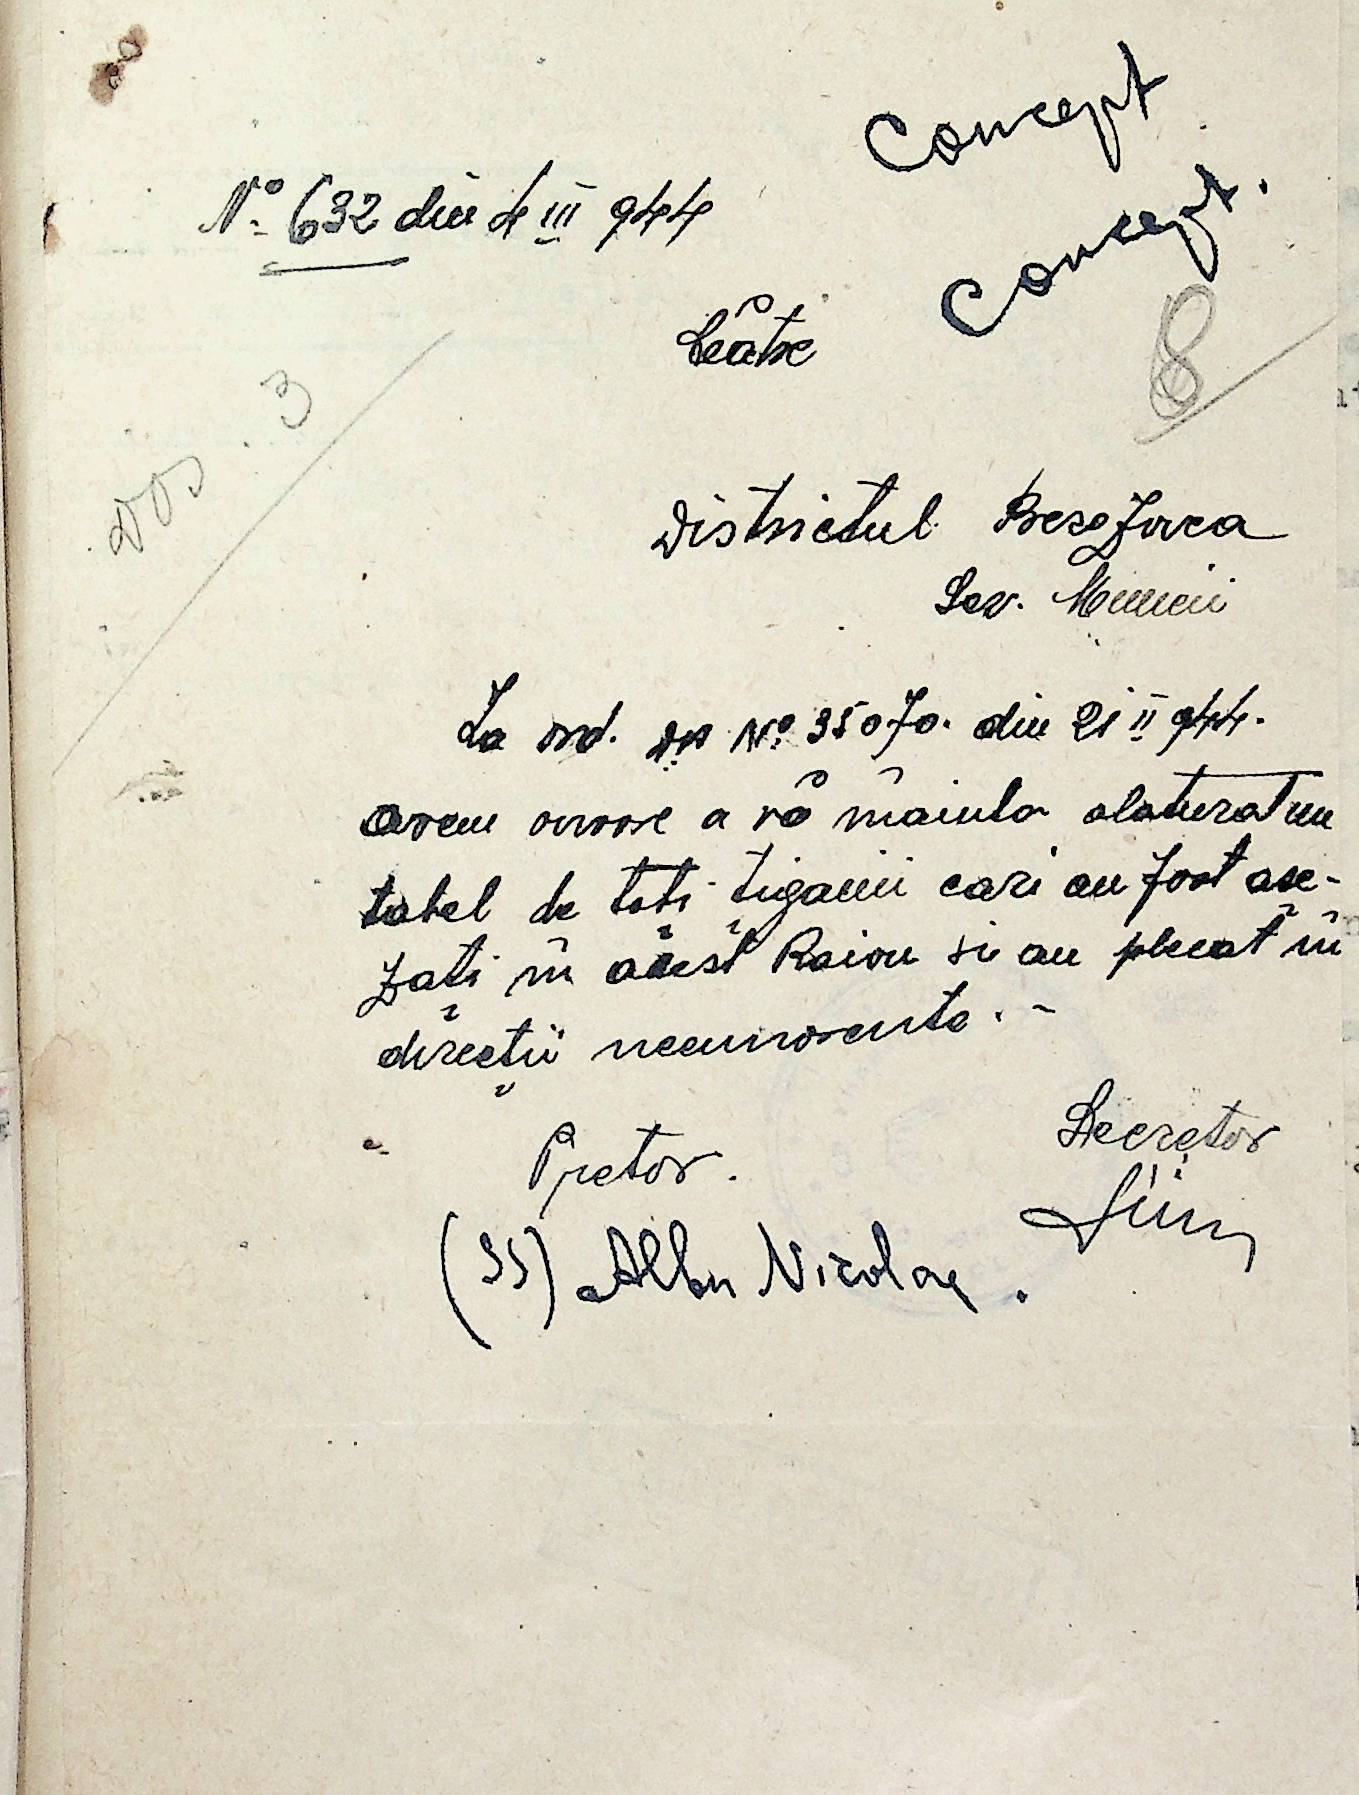 Concept
Concept.
Nº 632 din 4 III 944
8
Către
Dos. 3
Districtul Berezovca
Sev. Muncii
La ord. Dv Nº 35070. din 21 II 944.
avem onoare a vă înainta alaturat un
tabel de toți țiganii cari au fost așe-
zați în acest Raion si au plecat în
direcții necunoscute. -
Pretor.
Secretor
(SS) Albu Nicolae.